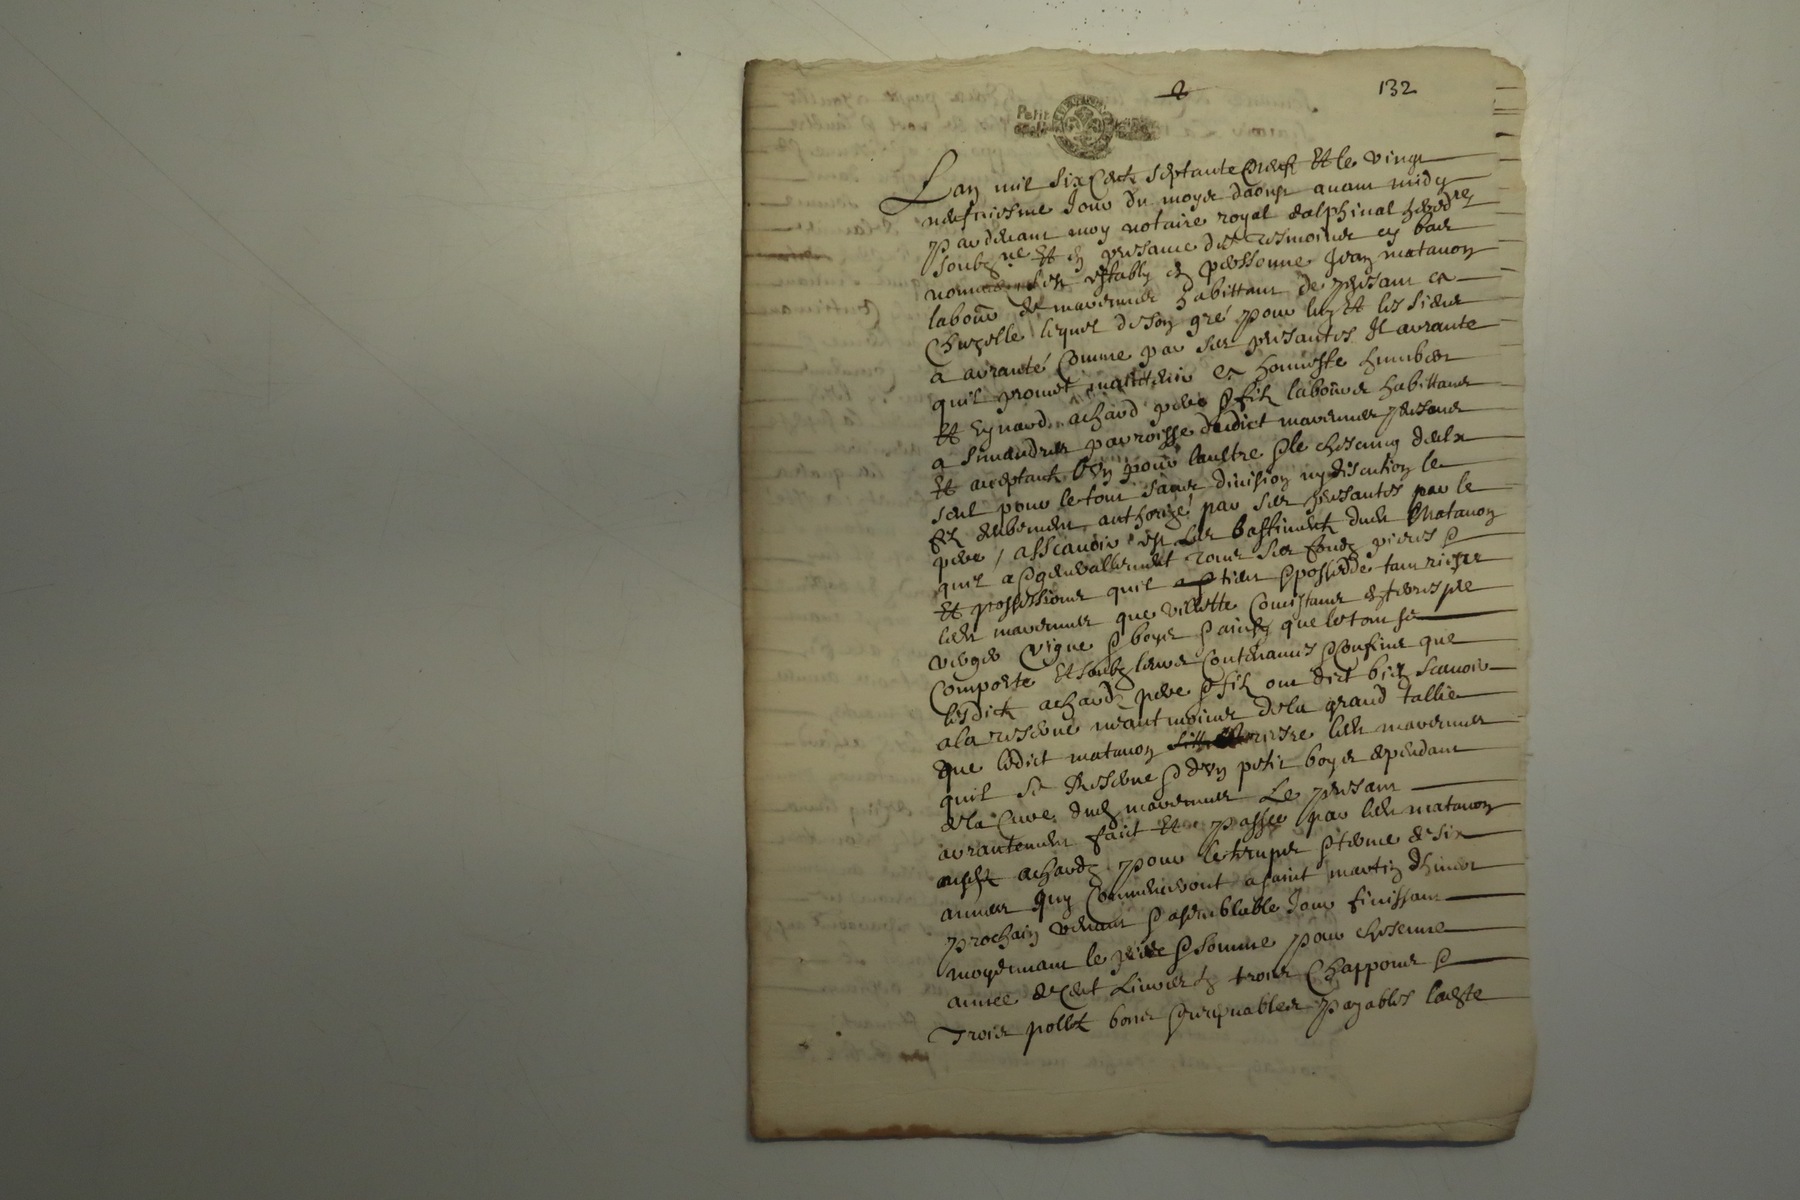 132
Petit
Lan mil six cent septante neuf et le vingt
neufviesme Jour du moys daoust avant midy
par devant moy notaire royal dalphinal hered.re
soubz.ne et en presance des tesmoins cy bas
nommes sest estably en personne Jean matavon
labour de marennes habittant de presant en
lequel de son gré pour luy et les siens
a arranté comme par ses presantes Il arrante
quil promet maintenir a honneste humbert
et Eynard achard pere & filz laboure habittans
a simandres parroisse dudict marennes presans
et acceptant lun pour laultre & le chescung deulx
seul pour le tout sans division ny discution le
filz deubement authorizé par ses presantes par le
pere / asscavoir est les bastiment dud Matavon
quil a & generallement tous ses fondz pieres &
et possessions quil a & tient & possedde tant rière
led marennes que villette Consistant en terres pre
verger vigne & boys & ainsy que le tout se
Comporte et soubz leurs Contenances & Confins que
lesdict achard pere & filz ont dict bien scavoir
a la reserve neantmoins de la grand tallie
que ledict matavon riere led marennes
quil se Reserve & dun petit boys dependant
de la Cure dud marennes Le presant
arrantement faict et passé par led matavon
ausd achard pour le temps & terme de six
annees quy Commenceront a saint martin dhiver
prochain venant & a semblable Jour finissant
moyennant le prix & somme pour chescune
annee de cent Livres trois Chappons &
Trois pollet bons & receptables payables laeste